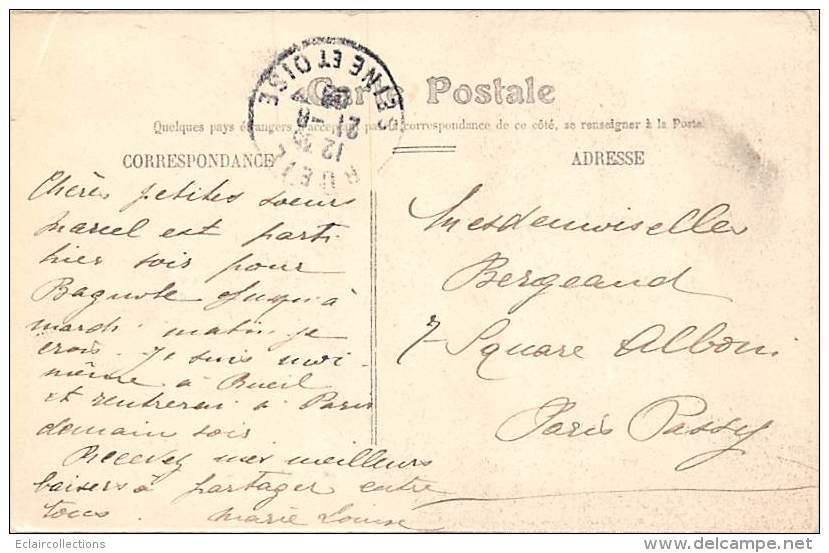 Carte Postale
Quelques pays étrangers n'acceptent pas la correspondance de ce côté, se renseigner à la Poste.
CORRESPONDANCE
ADRESSE
RUEIL
SEINE ET OISE
12 35
21 -8
Chères petites soeurs
Marcel est parti
hier soir pour
Bagnole jusqu'à
mardi matin je
crois. Je suis moi-
même à Rueil
et rentrerai à Paris
demain soir
Recevez mes meilleurs
baisers à partager entre
tous. Marie Louise
Mesdemoiselles
Bergeaud
7 Square Alboni
Paris Passy
Eclaircollections
delcampe.net